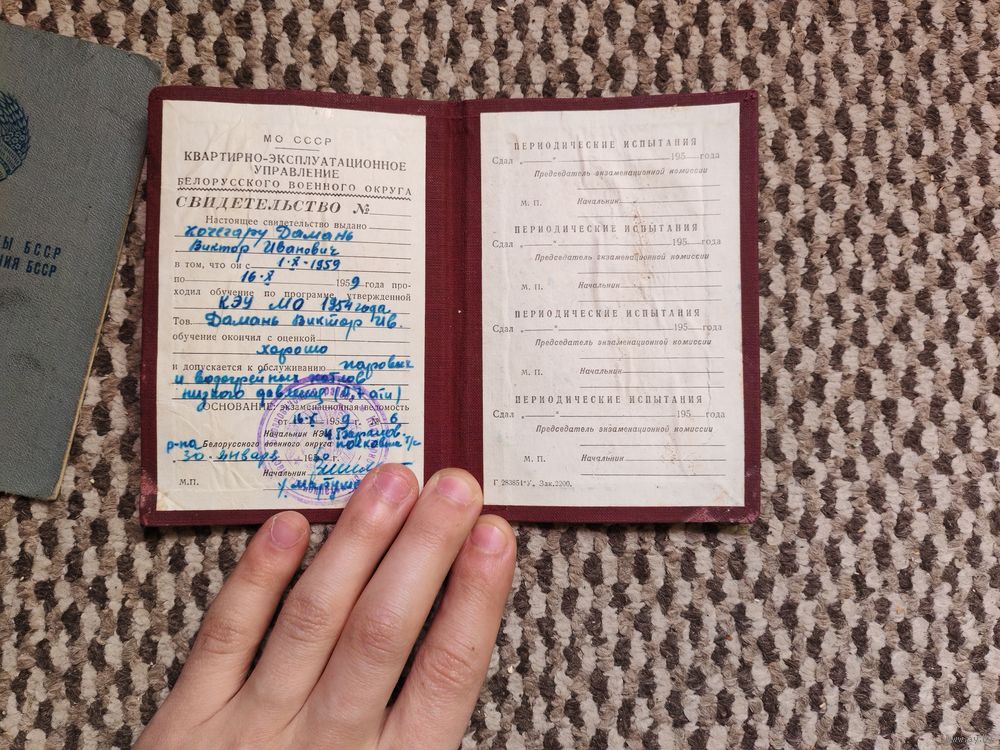 Ы БССР
НИЯ БССР
МО СССР
КВАРТИРНО-ЭКСПЛУАТАЦИОННОЕ
УПРАВЛЕНИЕ
БЕЛОРУССКОГО ВОЕННОГО ОКРУГА
СВИДЕТЕЛЬСТВО №
Настоящее свидетельство выдано
кочегару Дамань
Виктор Иванович
в том, что он с 1·X·1959
по 16·X 1959 года про-
ходил обучение по программе, утвержденной
КЭУ МО 1954 года
Тов. Дамань Виктор Ив.
обучение окончил с оценкой
хорошо
и допускается к обслуживанию паровых
и водогрейных котлов
низкого давления (0,7 ати)
ОСНОВАНИЕ: экзаменационная ведомость
от 16·X 1959 г. № 6
Начальник КЭЧ
р-на Белорусского военного округа
30 января г.
Начальник
М.П.
ПЕРИОДИЧЕСКИЕ ИСПЫТАНИЯ
Сдал „ “ 195 года
Председатель экзаменационной комиссии
М. П. Начальник
ПЕРИОДИЧЕСКИЕ ИСПЫТАНИЯ
Сдал „ “ 195 года
Председатель экзаменационной комиссии
М. П. Начальник
ПЕРИОДИЧЕСКИЕ ИСПЫТАНИЯ
Сдал „ “ 195 года
Председатель экзаменационной комиссии
М. П. Начальник
ПЕРИОДИЧЕСКИЕ ИСПЫТАНИЯ
Сдал „ “ 195 года
Председатель экзаменационной комиссии
М. П. Начальник
Зак. 2200.